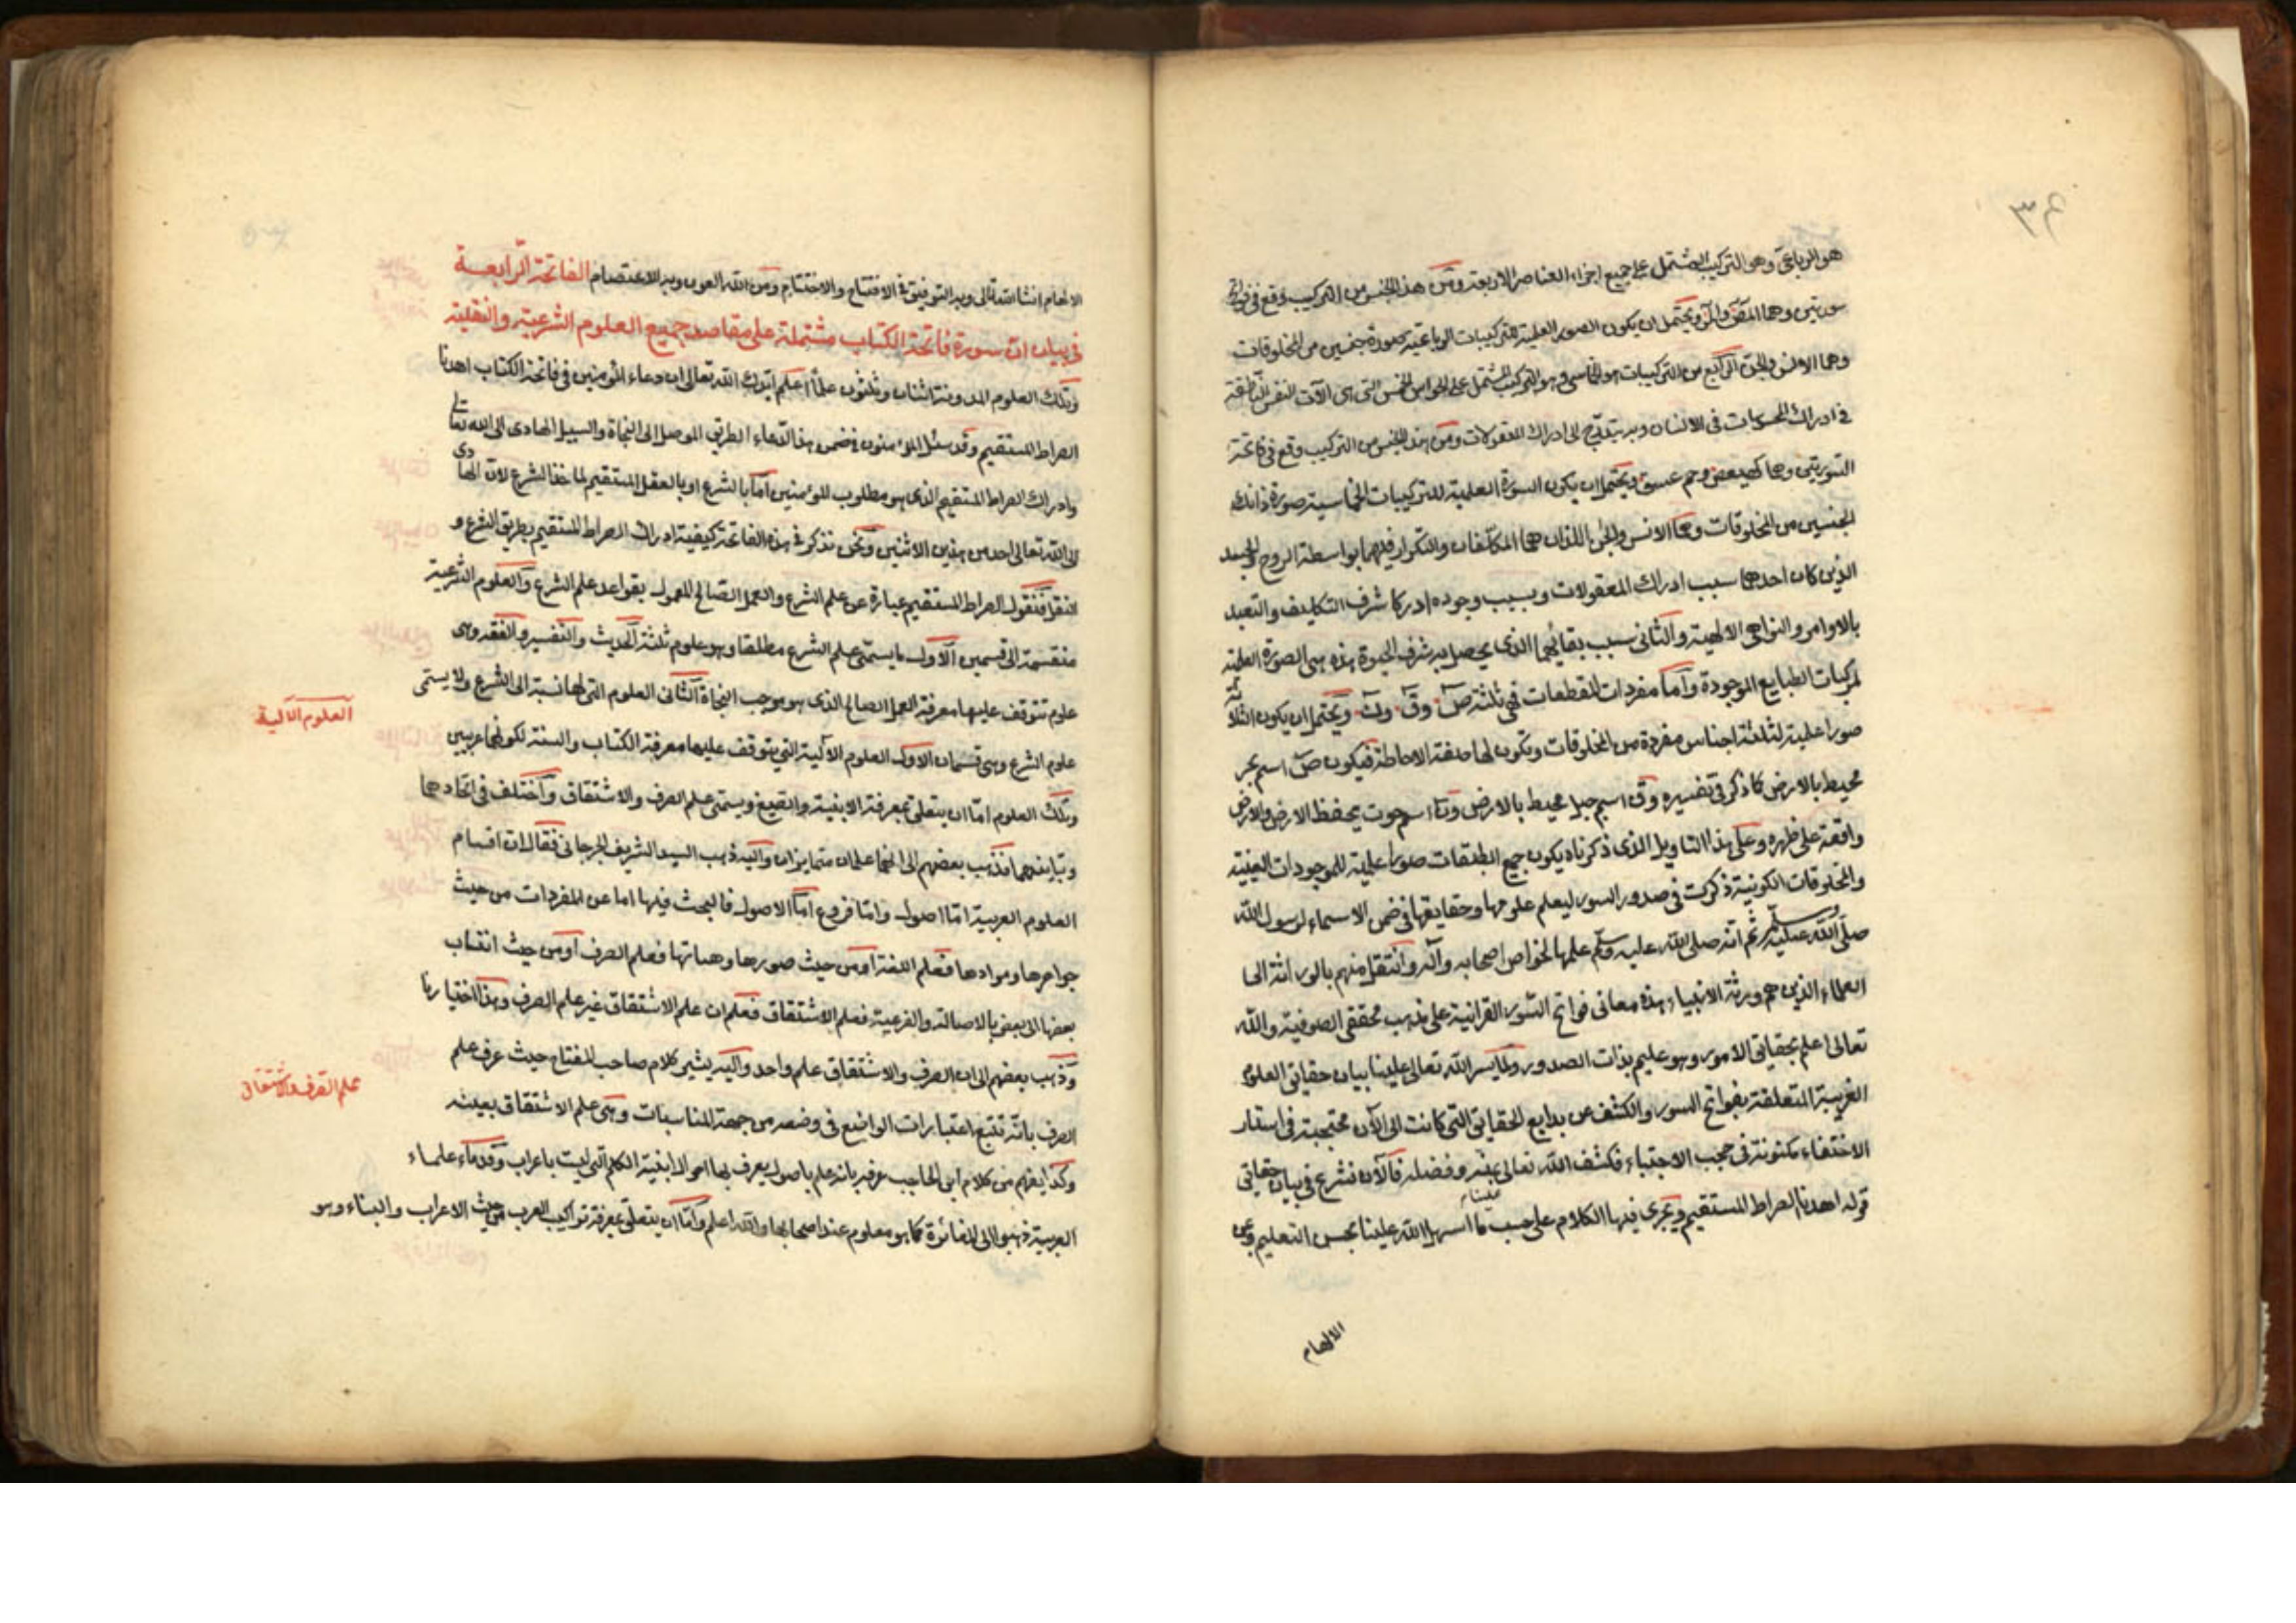 ٣٤
هو الرباعي وهو التركيب المشتمل على جميع اجزاء العناصر الاربعة ومن هذا الجنس من التركيب وقع في فواتح
سورتين وهما المص والمر ويحتمل ان يكون الصور العلمية للتركيبات الرباعية صورة جنسين من المخلوقات
وهما الانس والجن الرابع من التركيبات هو الخماسي وهو التركيب المشتمل على الحواس الخمس التي هي الآت النفس الناطقة
في ادراك المحسوسات في الانسان وبه يتدرج الى ادراك المعقولات ومن هذا الجنس من التركيب وقع في فاتحة
السورتين وهما كهيعص وحم عسق ويحتمل ان يكون السورة العلمية للتركيبات الخماسية صورة ذانك
الجنسين من المخلوقات وهما الانس والجن اللذان هما المكلفان والتكرار فيهما بواسطة الروح والجسد
الذين كان احدهما سبب ادراك المعقولات وبسبب وجوده ادركا شرف التكليف والتعبد
بالاوامر والنواهي الالهية والثاني سبب بقائهما الذي يحصل به شرف الحيوة هذه هي الصورة العلمية
لمركبات الطبايع الموجودة واما مفردات المقطعات فهي ثلثة ص وق ون ويحتمل ان يكون الثلاثة
صورا علمية لثلثة اجناس مفردة من المخلوقات وتكون لها صفة الاحاطة فيكون ص اسم بحر
محيط بالارض كما ذكر في تفسيره وق اسم جبل محيط بالارض ون اسم حوت يحفظ الارض والارض
واقعة على ظهره وعلى هذا التاويل الذي ذكرناه يكون جميع المقطعات صورا علمية للموجودات العينية
والمخلوقات الكونية ذكرت في صدور السور ليعلم علومها وحقايقها في ضمن الاسماء لرسول الله
صلى الله عليه وسلم ثم انه صلى الله عليه وسلم علمها لخواص اصحابه وآله وانتقل منهم بالوراثة الى
العلماء الذين هم ورثة الانبياء هذه معاني فواتح السور القرانية على مذهب محققي الصوفية والله
تعالى اعلم بحقايق الامور وهو عليم بذات الصدور ولما يسر الله تعالى علينا بيان حقايق العلوم
الغريبة المتعلقة بفواتح السور والكشف عن بدايع الحقايق التي كانت الى الآن محتجبة في استار
الاختفاء مكنونة في حجب الاجتباء فكشف الله تعالى بمنه وفضله فالآن نشرع في بيان حقايق
قوله اهدنا الصراط المستقيم ويجري فيها الكلام على حسب ما اسهل الله علينا بحسن التعليم وعن
الالهام
الالهام انشا الله تعالى وبه التوفيق في الافتتاح والاختتام ومن الله العون وبه الاعتصام الفاتحة الرابعة
في بيان ان سورة فاتحة الكتاب مشتملة على مقاصد جميع العلوم الشرعية والنقلية
وتلك العلوم المدونة اثنان وثلثون علما اعلم ايدك الله تعالى ان دعاء المؤمنين في فاتحة الكتاب اهدنا
الصراط المستقيم وقد سئل المؤمنون في ضمن هذا الدعاء الطريق الموصل الى النجاة والسبيل الهادي الى الله تعالى
وادراك الصراط المستقيم الذي هو مطلوب للمؤمنين اما بالشرع او بالعقل المستقيم لماخذ الشرع لان الهادي
الى الله تعالى احد من هذين الاثنين ونحن نذكر في هذه الفاتحة كيفية ادراك الصراط المستقيم بطريق الشرع و
النقل فنقول الصراط المستقيم عبارة عن علم الشرع والعمل الصالح المعمول بقواعد علم الشرع والعلوم الشرعية
منقسمة الى قسمين الاول ما يسمى علم الشرع مطلقا وهو علوم ثلثة الحديث والتفسير والفقه وهي
علوم تتوقف عليها معرفة العمل الصالح الذي هو موجب النجاة الثاني العلوم التي لها نسبة الى الشرع ولا يسمى
العلوم الآلية
علوم الشرع وهي قسمان الاول العلوم الآلية التي يتوقف عليها معرفة الكتاب والسنة لكونهما عربيين
وتلك العلوم اما ان يتعلق بمعرفة الابنية والصيغ ويسمى علم الصرف والاشتقاق واختلف في اتحادهما
وتباينهما فذهب بعضهم الى انهما علمان متمايزان واليه ذهب السيد الشريف الجرجاني فقال ان اقسام
العلوم العربية اما اصول واما فروع اما الاصول فالبحث فيها اما عن المفردات من حيث
جواهرها وموادها فعلم اللغة او من حيث صورها وهيأتها فعلم الصرف او من حيث انتساب
بعضها الى بعض بالاصالة والفرعية فعلم الاشتقاق فعلم ان علم الاشتقاق غير علم الصرف وهذا اختيارنا
وذهب بعضهم الى ان الصرف والاشتقاق علم واحد واليه يشير كلام صاحب المفتاح حيث عرف علم
علم الصرف والاشتقاق
الصرف بانه تتبع اعتبارات الواضع في وضعه من جهة المناسبات وهي علم الاشتقاق بعينه
وكذا يفهم من كلام ابن الحاجب عرفه بانه علم باصول يعرف بها احوال ابنية الكلم التي ليست باعراب وقدماء علماء
العربية ذهبوا الى المغائرة كما هو معلوم عند اصحابها والله اعلم واما ان يتعلق بمعرفة تراكيب العرب من حيث الاعراب والبناء وهو